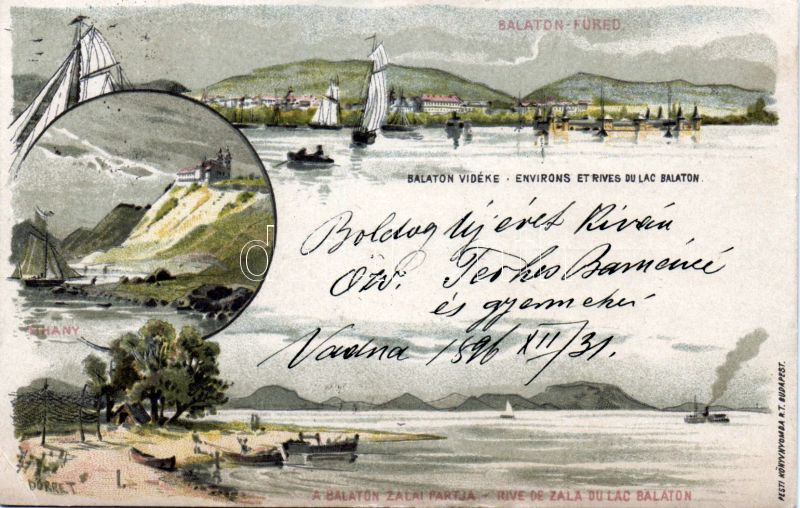 BALATON-FÜRED.
BALATON VIDÉKE - ENVIRONS ET RIVES DU LAC BALATON.
Boldog Új évet Kíván
Özv.
és gyermekei
Vadna 1896 XII/31.
TIHANY
DÖRRET
I.
A BALATON ZALAI PARTJA - RIVE DE ZALA DU LAC BALATON
PESTI KÖNYVNYOMDA R.T. BUDAPEST.